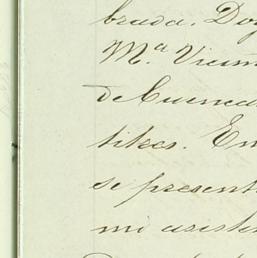 brada. Doy
Mª Vicen
de Cuenca
tikes. En
se present
mi asisten